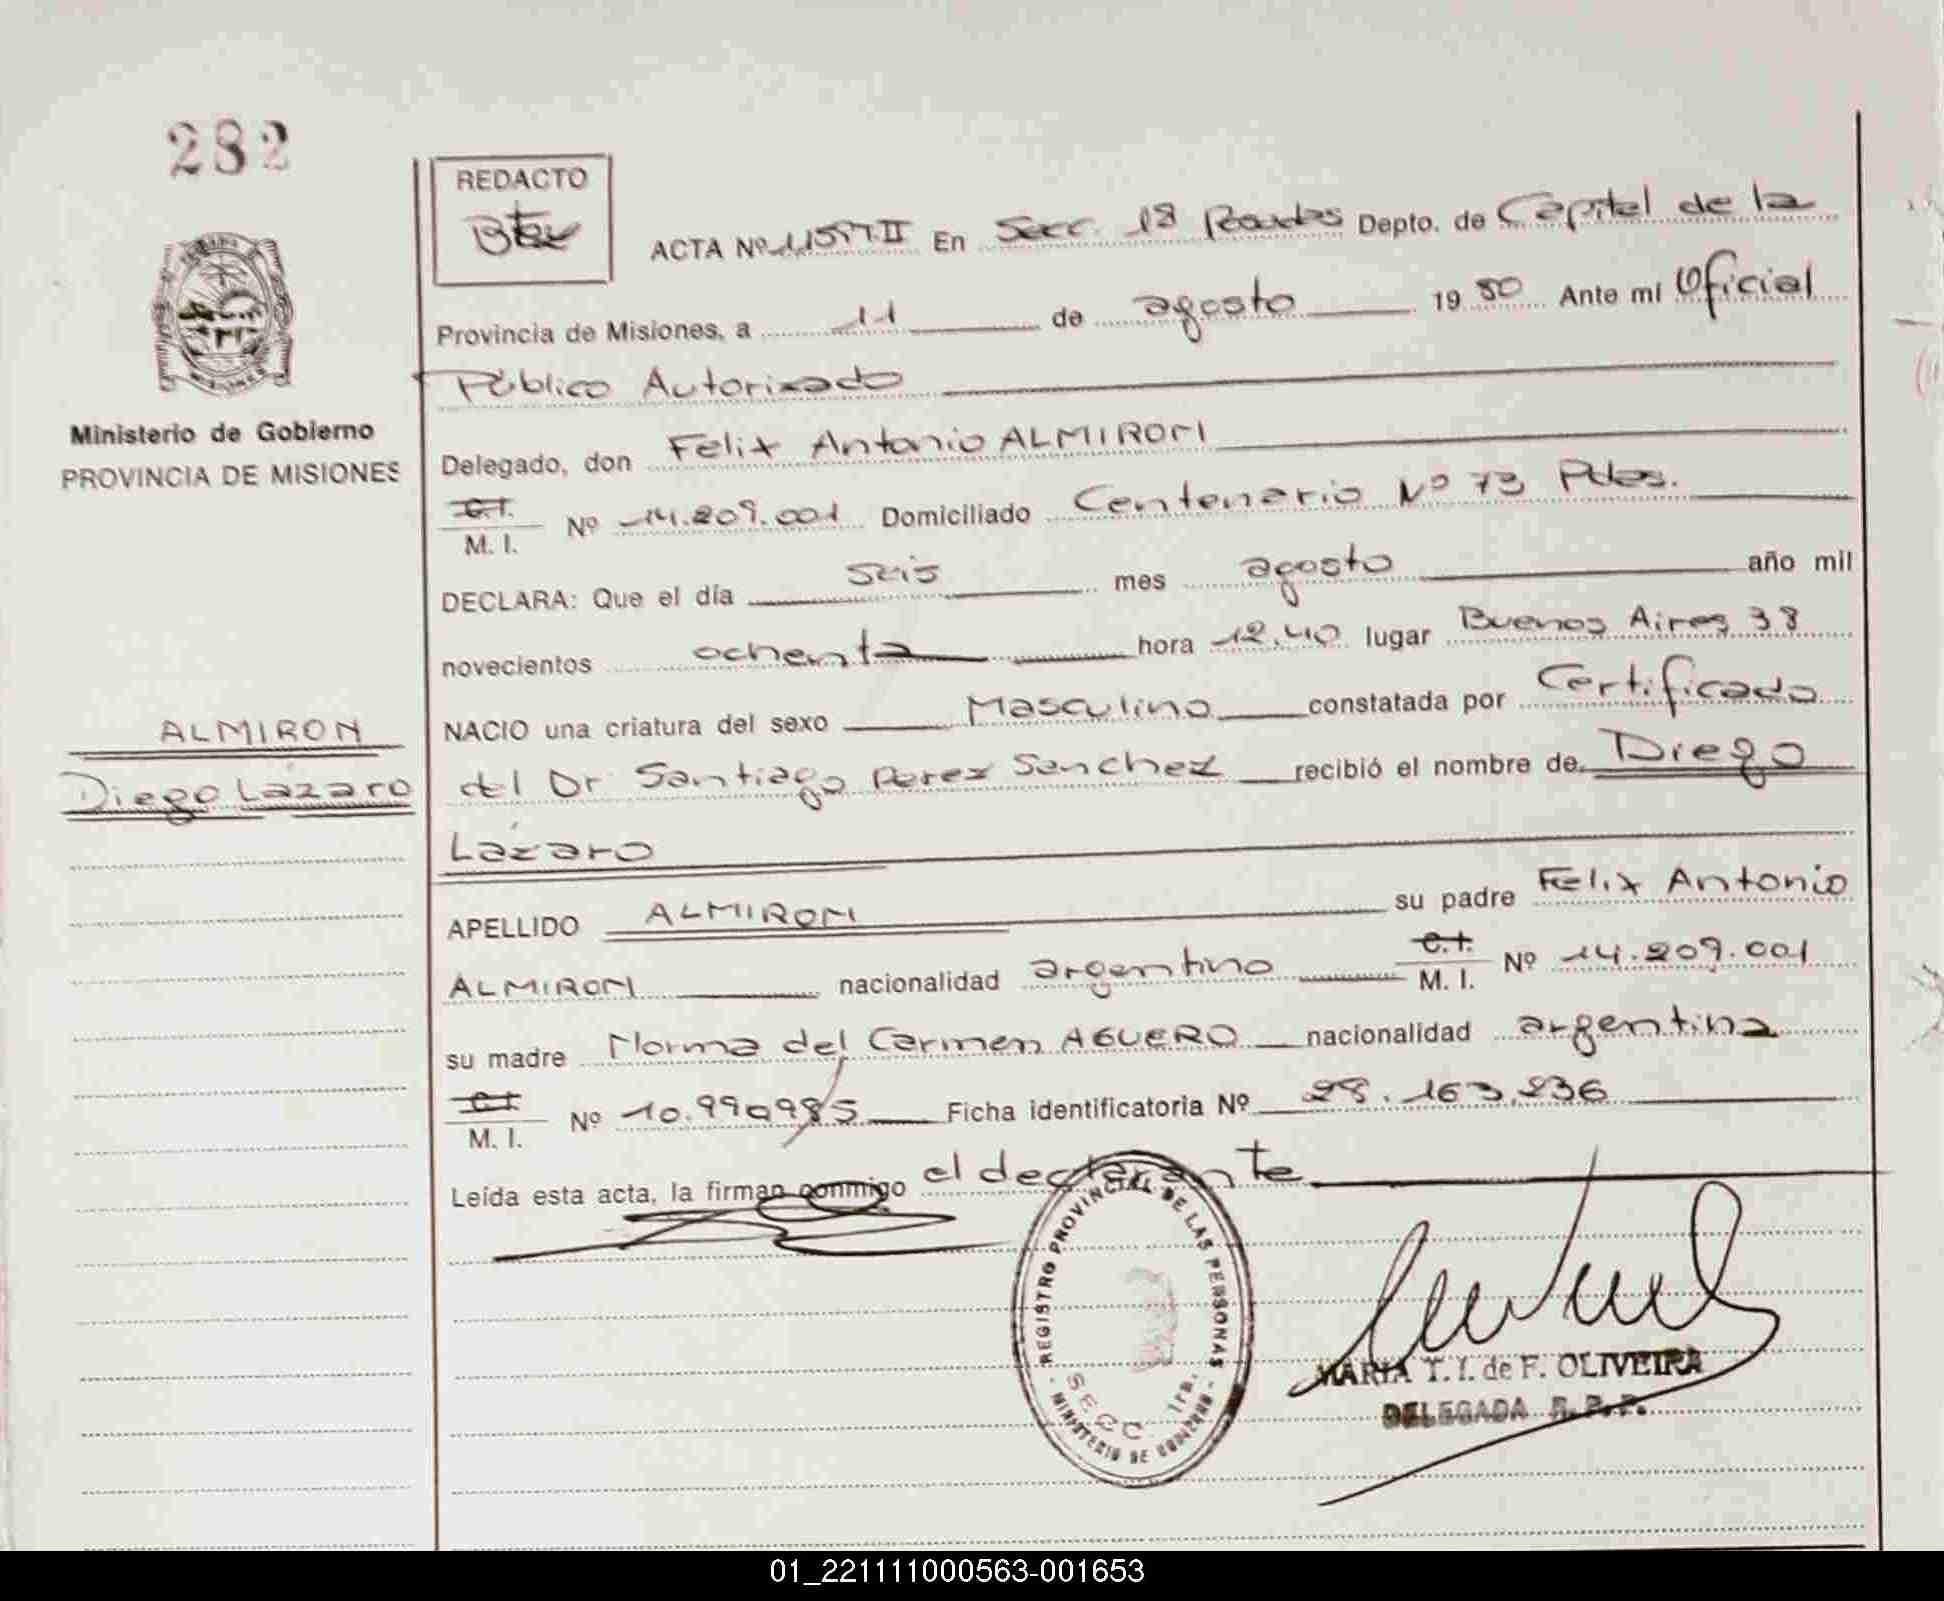 282
REDACTO
ACTA Nº 1157.II En Secc. 1ª Posadas Depto. de Capital de la
Provincia de Misiones, a 11 de agosto 1980 Ante mí Oficial
Público Autorizado
Ministerio de Gobierno
PROVINCIA DE MISIONES
Delegado, don Felix Antonio ALMIRON
C.I.
M. I. Nº 14.209.001 Domiciliado Centenario Nº 73 Pdas.
DECLARA: Que el día seis mes agosto año mil
novecientos ochenta hora 12.40 lugar Buenos Aires 38
NACIO una criatura del sexo Masculino constatada por Certificado
ALMIRON
Diego Lázaro
del Dr Santiago Perez Sanchez recibió el nombre de Diego
Lázaro
APELLIDO ALMIRON su padre Felix Antonio
ALMIRON nacionalidad argentino C.I. M. I. Nº 14.209.001
su madre Norma del Carmen AGUERO nacionalidad argentina
C.I.
M. I. Nº 10.990985 Ficha identificatoria Nº 28.163.236
Leída esta acta, la firman conmigo el declarante
REGISTRO PROVINCIAL DE LAS PERSONAS
SECC. 1ra.
MINISTERIO DE GOBIERNO
MARIA T. I. de F. OLIVEIRA
DELEGADA R. P. P.
01_221111000563-001653